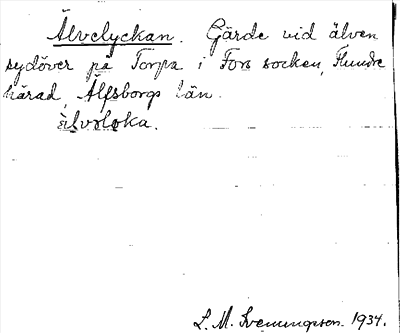 Älvelyckan. Gärde vid älven
sydöver på Torpa i Fors socken, Flundre
härad, Älfsborgs län.
älvoloka.
L. M. Svenungsson. 1934.